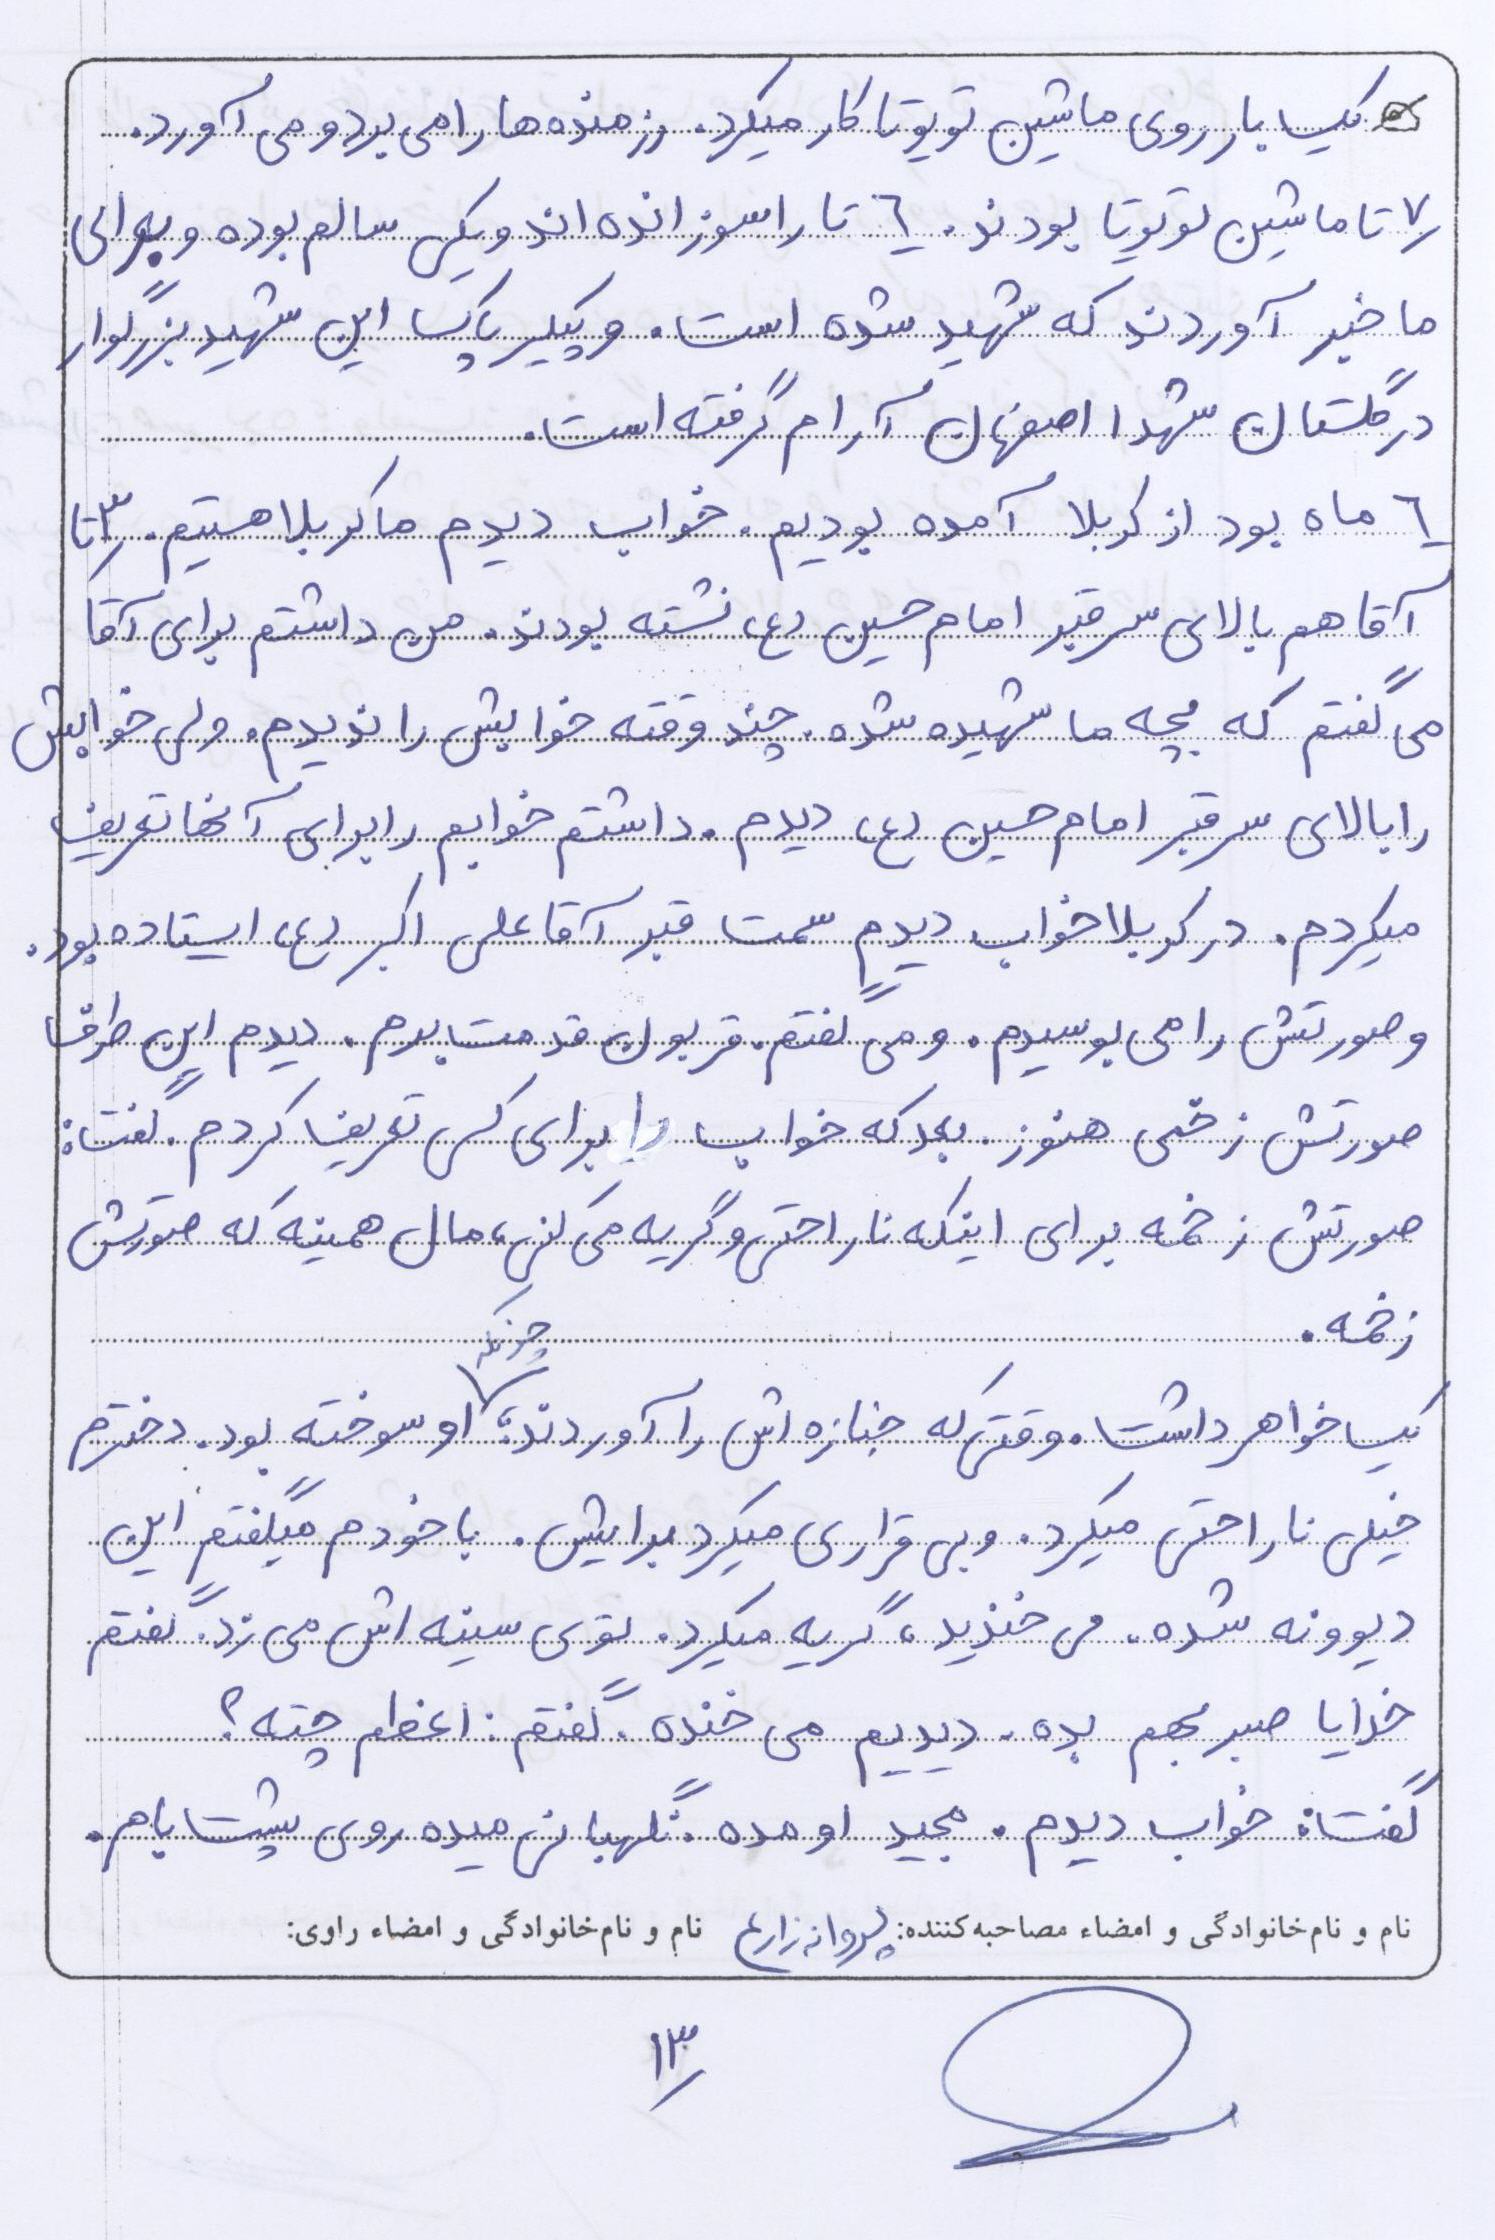 یک بار روی ماشین تویوتا کار میکرد. رزمنده ها را می برد و می آورد.
۷ تا ماشین تویوتا بودند. ٦ تا را سوزانده اند و یکی سالم بوده و برای
ما خبر آوردند که شهید شده است. و پیکیر پاک این شهید بزرگوار
در گلستان شهدا اصفهان آرام گرفته است.
٦ ماه بود از کربلا آمده بودیم. خواب دیدم ما کربلا هستیم. ۳ تا
آقا هم بالای سر قبر امام حسین (ع) نشته بودند. من داشتم برای آقا
می گفتم که بچه ما شهیده شده. چند وقته خوابش را ندیدم. ولی خوابش
را بالای سر قبر امام حسین (ع) دیدم. داشتم خوابم را برای آنها تعریف
میکردم. در کربلا خواب دیدم سمت قبر آقا علی اکبر (ع) ایستاده بود.
و صورتش را می بوسیدم. و می گفتم. قربون قدمت برم. دیدم این طرف
صورتش زخمی هنوز. بعد که خواب را برای کسی تعریف کردم. گفت:
صورتش زخمه برای اینکه ناراحتی و گریه می کنی، مال همینه که صورتش
زخمه.
یک خواهر داشت. وقتی که جنازه اش را آوردند؛ چونکه او سوخته بود. دخترم
خیلی ناراحتی میکرد. و بی قراری میکرد برایش. با خودم میگفتم این
دیوونه شده. می خندید، گریه میکرد. توی سینه اش می زد. گفتم
خدایا صبر بهم بده. دیدیم می خنده. گفتم: اعظم چته؟
گفت: خواب دیدم. مجید اومده. نگهبانی میده روی پشت بام.
نام و نام خانوادگی و امضاء مصاحبه کننده: پروانه زارع نام و نام خانوادگی و امضاء راوی:
۱۳